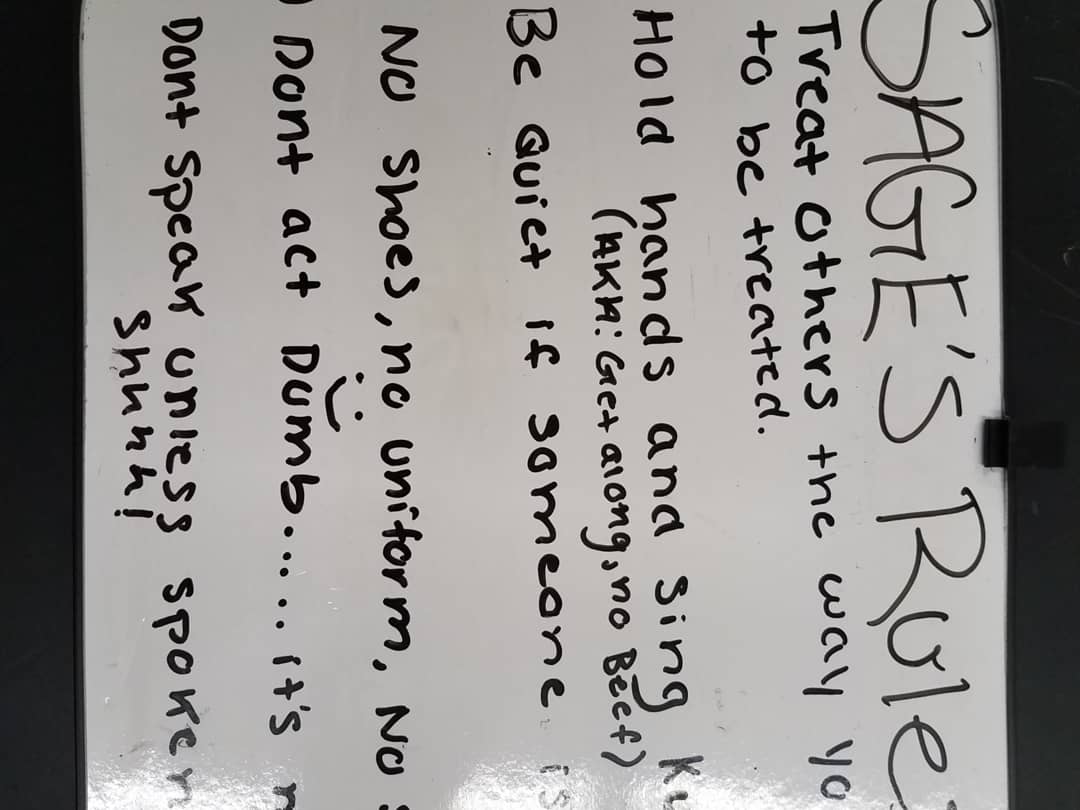 SAGE'S Rule
Treat others the way yo
to be treated.
Hold hands and sing
(AKA: Get along, no Beef)
Be quiet if someone is
No shoes, no uniform, No
Dont act Dumb...... it's
Dont speak unless spoken
Shhhh!